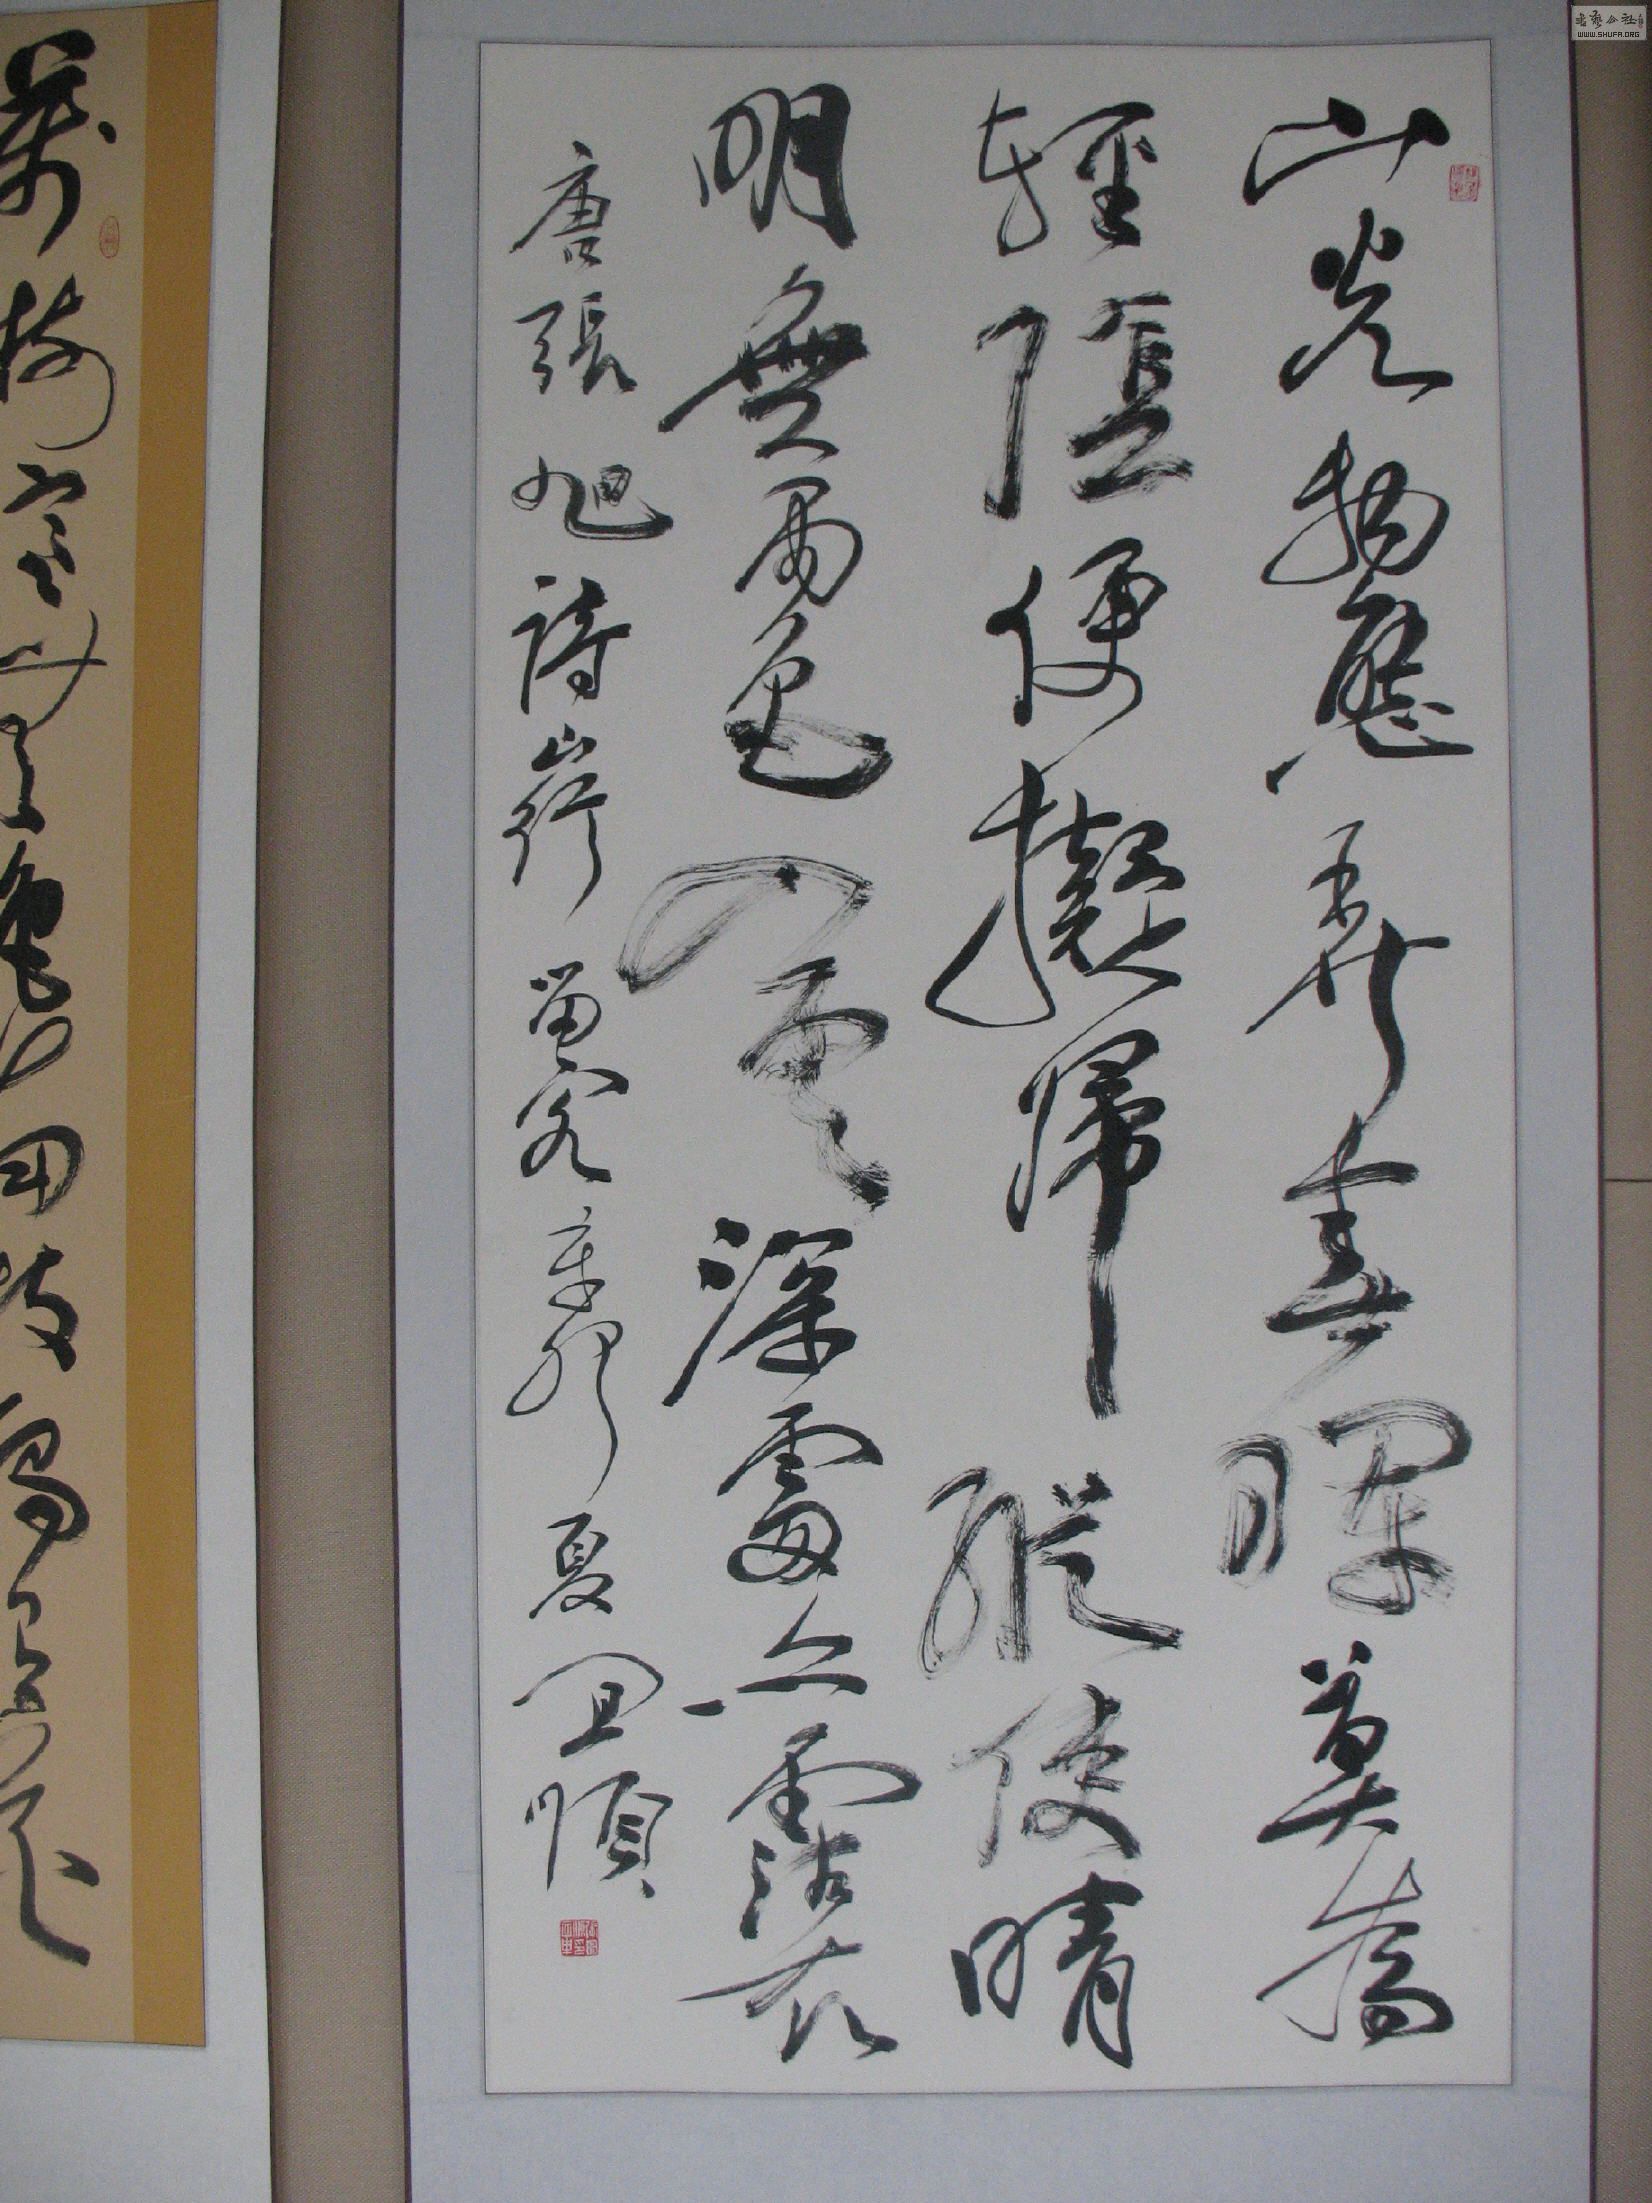 山光物態弄春暉莫為
輕陰便擬歸縱使晴
明無雨色入雲深處亦霑衣
唐張旭詩山行留客辛卯夏順
萬樹寒無色南枝獨有花
書藝公社
WWW.SHUFA.ORG